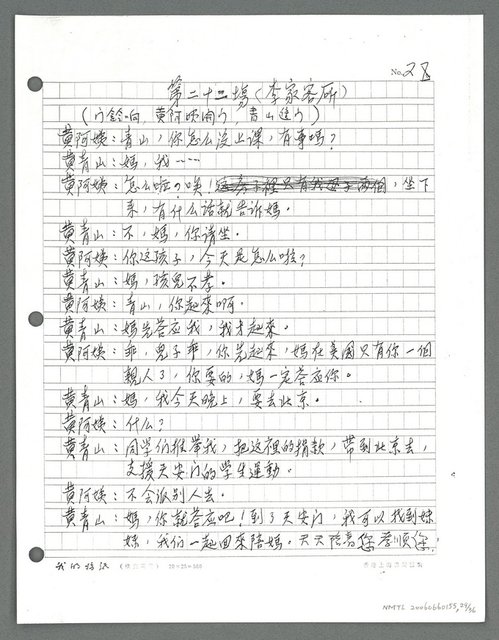 No. 28
第二十二場(李家客厅)
(门铃响,黄阿姨開门,青山進门)
黄阿姨:青山,你怎么没上课,有事嗎?
黄青山:媽,我……
黄阿姨:怎么啦?唉!這房子裡只有我母子兩個,坐下
来,有什么話就告诉媽。
黄青山:不,媽,你请坐。
黄阿姨:你这孩子,今天是怎么啦?
黄青山:媽,孩兒不孝。
黄阿姨:青山,你起來啊。
黄青山:媽先答应我,我才起來。
黄阿姨:乖,兒子乖,你先起來,媽在美國只有你一個
親人了,你要的,媽一定答应你。
黄青山:媽,我今天晚上,要去北京。
黄阿姨:什么?
黄青山:同学们推举我,把这裡的捐款,带到北京去,
支援天安门的学生運動。
黄阿姨:不会派别人去。
黄青山:媽,你就答应吧!到了天安门,我可以找到妹
妹,我们一起回來陪媽。天天陪着您孝順您。
20×25=500
NMTL 20060660155, 29/36